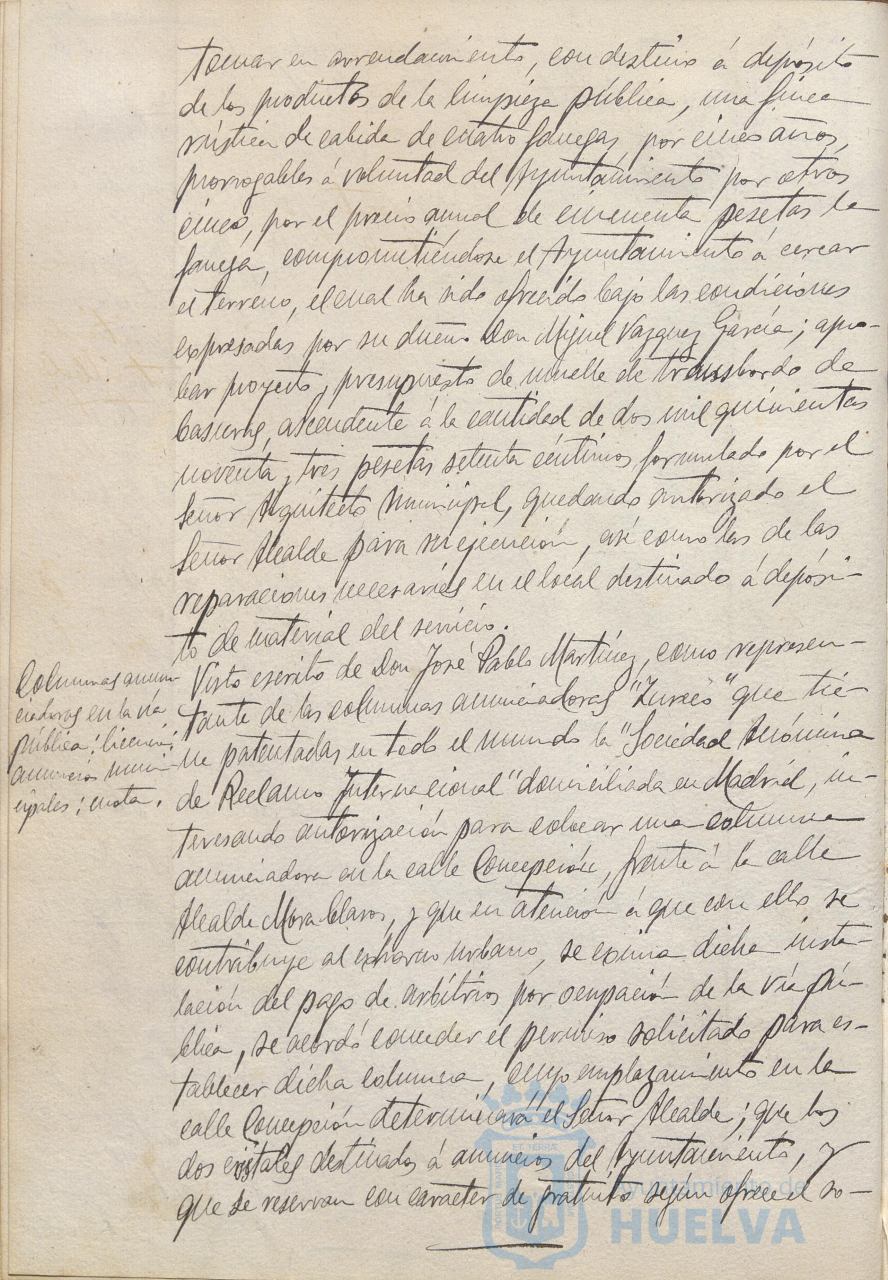 tomar en arrendamiento, con destino á depósito
de los productos de la limpieza pública, una finca
rústica de cabida de cuatro fanegas por cinco años,
prorrogables á voluntad del Ayuntamiento por otros
cinco, por el precio anual de cincuenta pesetas la
fanega, comprometiéndose el Ayuntamiento á cercar
el terreno, el cual ha sido ofrecido bajo las condiciones
expresadas por su dueño Don Miguel Vazquez García; apro-
bar proyecto, presupuesto de muelle de transbordo de
basuras, ascendente á la cantidad de dos mil quinientas
noventa, tres pesetas setenta céntimos formulado por el
Señor Arquitecto Municipal, quedando autorizado el
Señor Alcalde para su ejecución, así como las de las
reparaciones necesarias en el local destinado á depósi-
to de material del servicio.
Columnas anun-
ciadoras en la vía
pública; licencia;
anuncios muni-
cipales; cuota.
Visto escrito de Don José Pablo Martínez, como represen-
tante de las columnas anunciadoras que tie-
ne patentadas en todo el mundo la "Sociedad Anónima
de Reclamo Internacional" domiciliada en Madrid, in-
teresando autorización para colocar una columna
anunciadora en la calle Concepción, frente á la calle
Alcalde Mora Claros, y que en atención á que con ello se
contribuye al exhorno urbano, se exima dicha insta-
lación del pago de arbitrios por ocupación de la vía pú-
blica, se acordó conceder el permiso solicitado para es-
tablecer dicha columna, cuyo emplazamiento en la
calle Concepción determinará el Señor Alcalde; que los
dos cristales destinados á anuncios del Ayuntamiento, y
que se reservan con caracter de gratuito según ofrece el so-
Ayuntamiento de
HUELVA